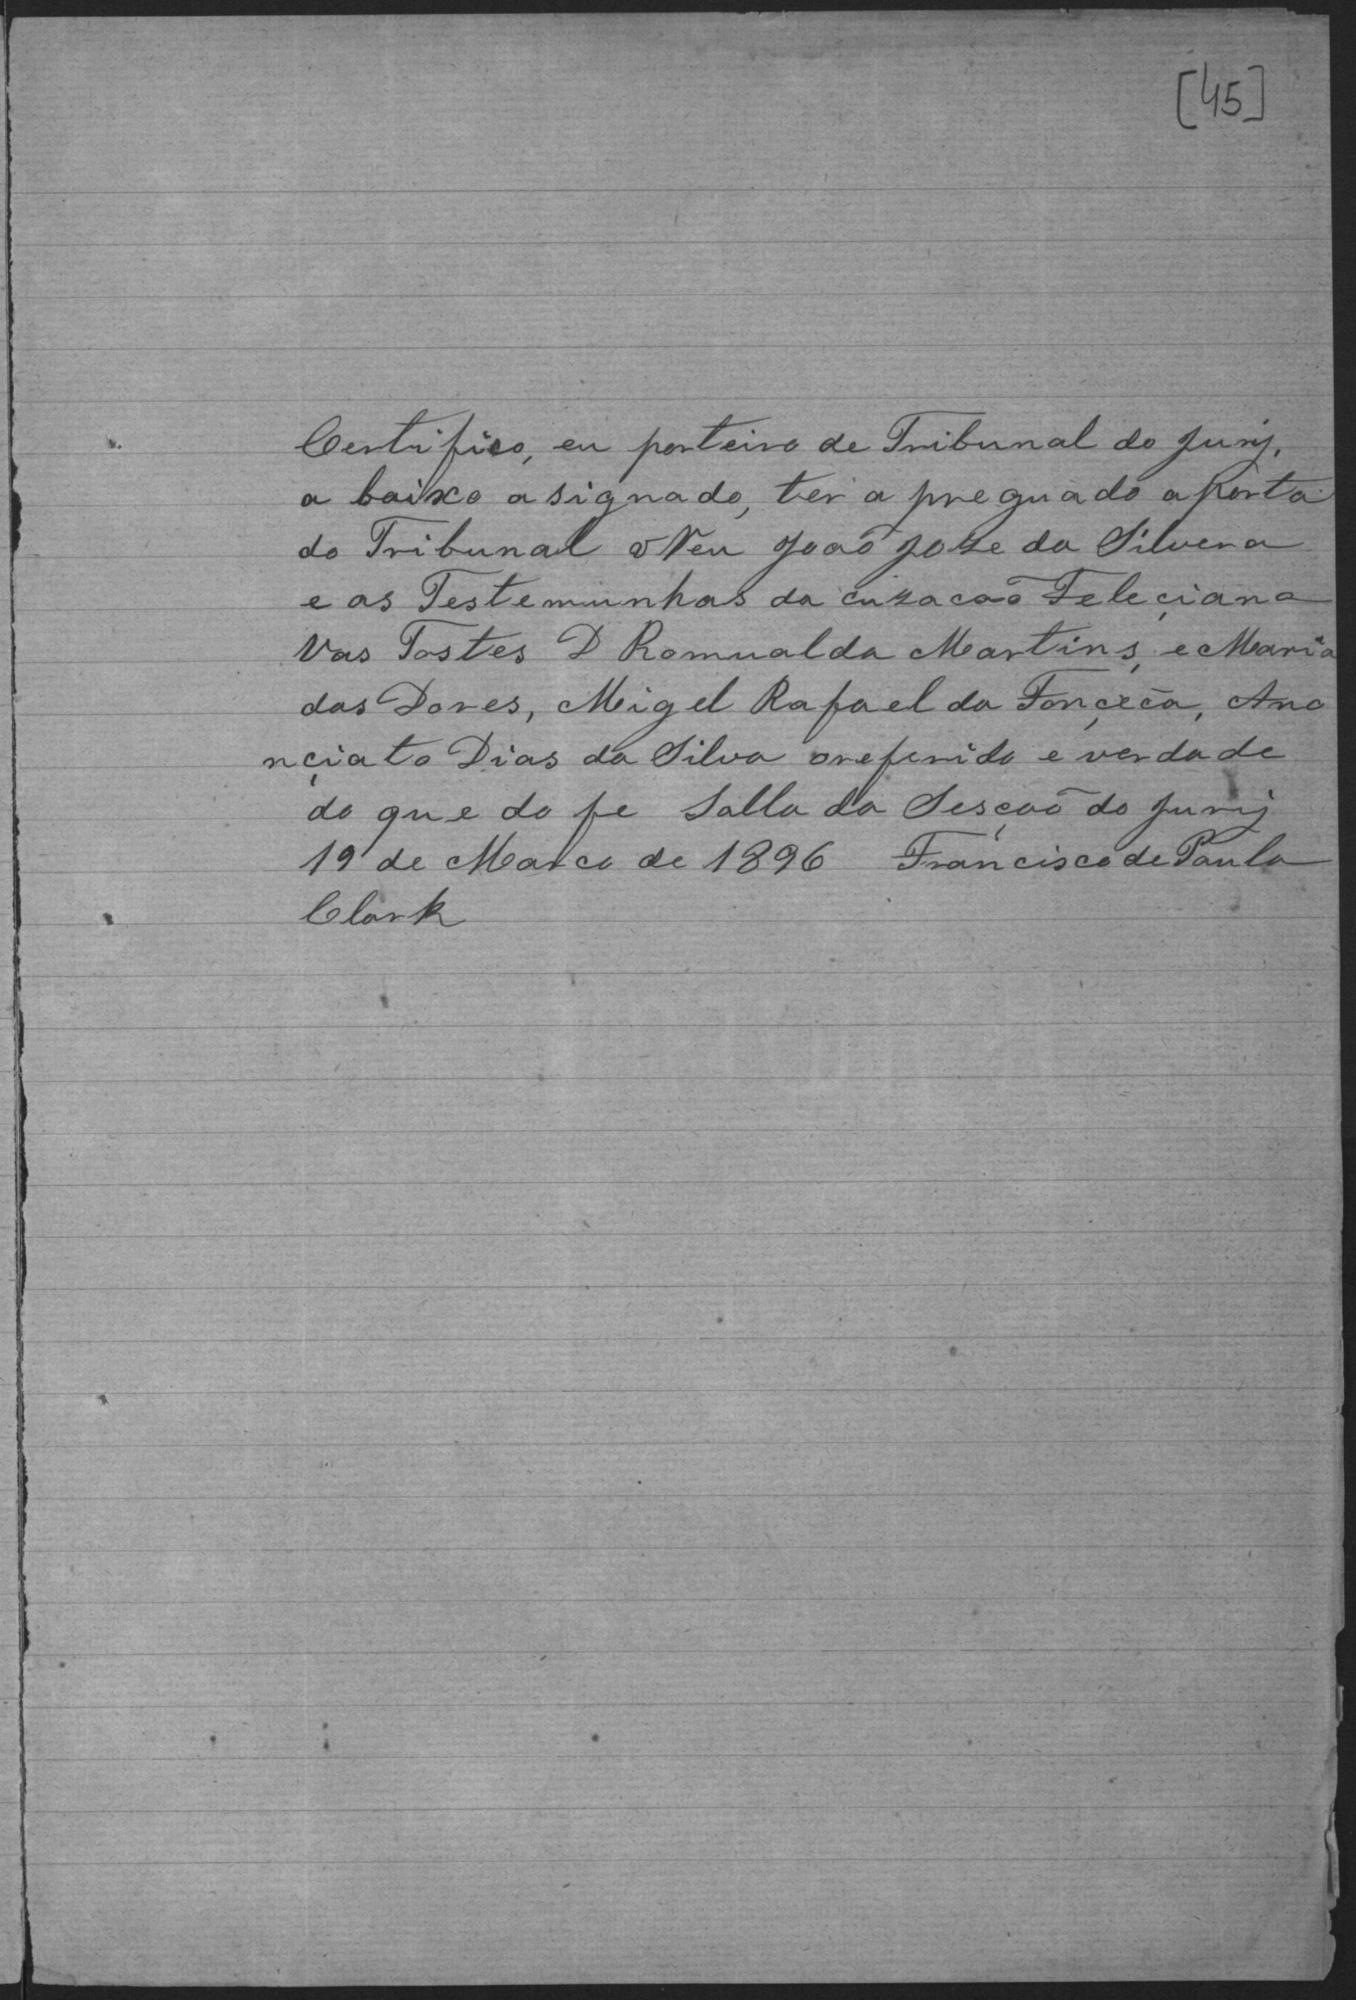 [45]
Certifico, eu porteiro de Tribunal do Jury,
a baixo a signado, ter a preguado a porta
do Tribunal o Reu João Joze da Silvera
e as Testemunhas da cuzacaõ Feleçiana
Vas Tostes D Romualda Martins, e Maria
das Dores, Migel Rafael da Fonçeca, Ano
nçiato Dias da Silva oreferido e verdade
do que do fe Salla da Sesçaõ do Jury
19 de Marco de 1896 Francisco de Paula
Clark